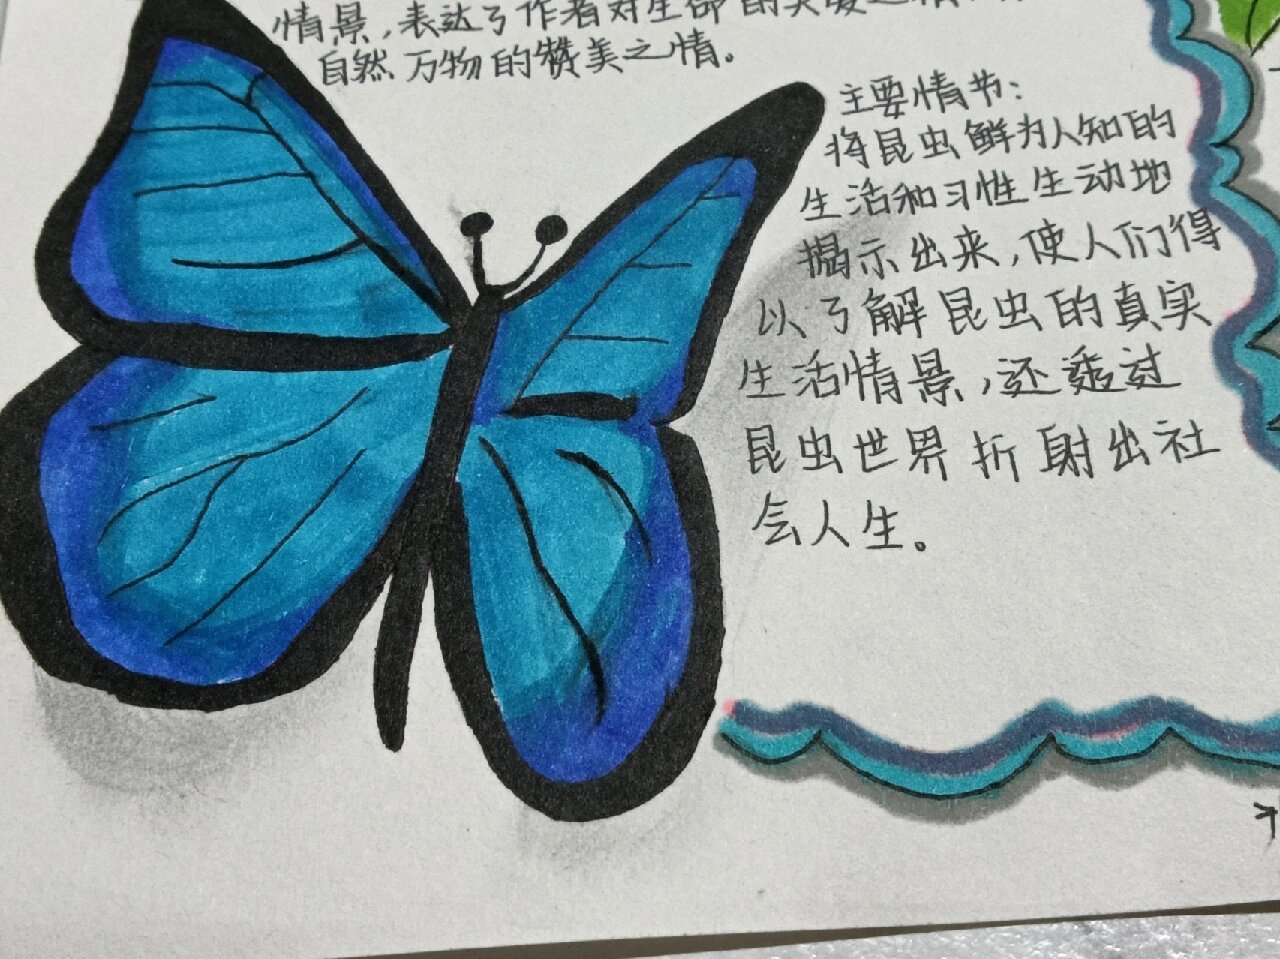 情景，表达了作者对生命的关爱之情
自然万物的赞美之情。
主要情节：
将昆虫鲜为人知的
生活和习性生动地
揭示出来，使人们得
以了解昆虫的真实
生活情景，还透过
昆虫世界折射出社
会人生。